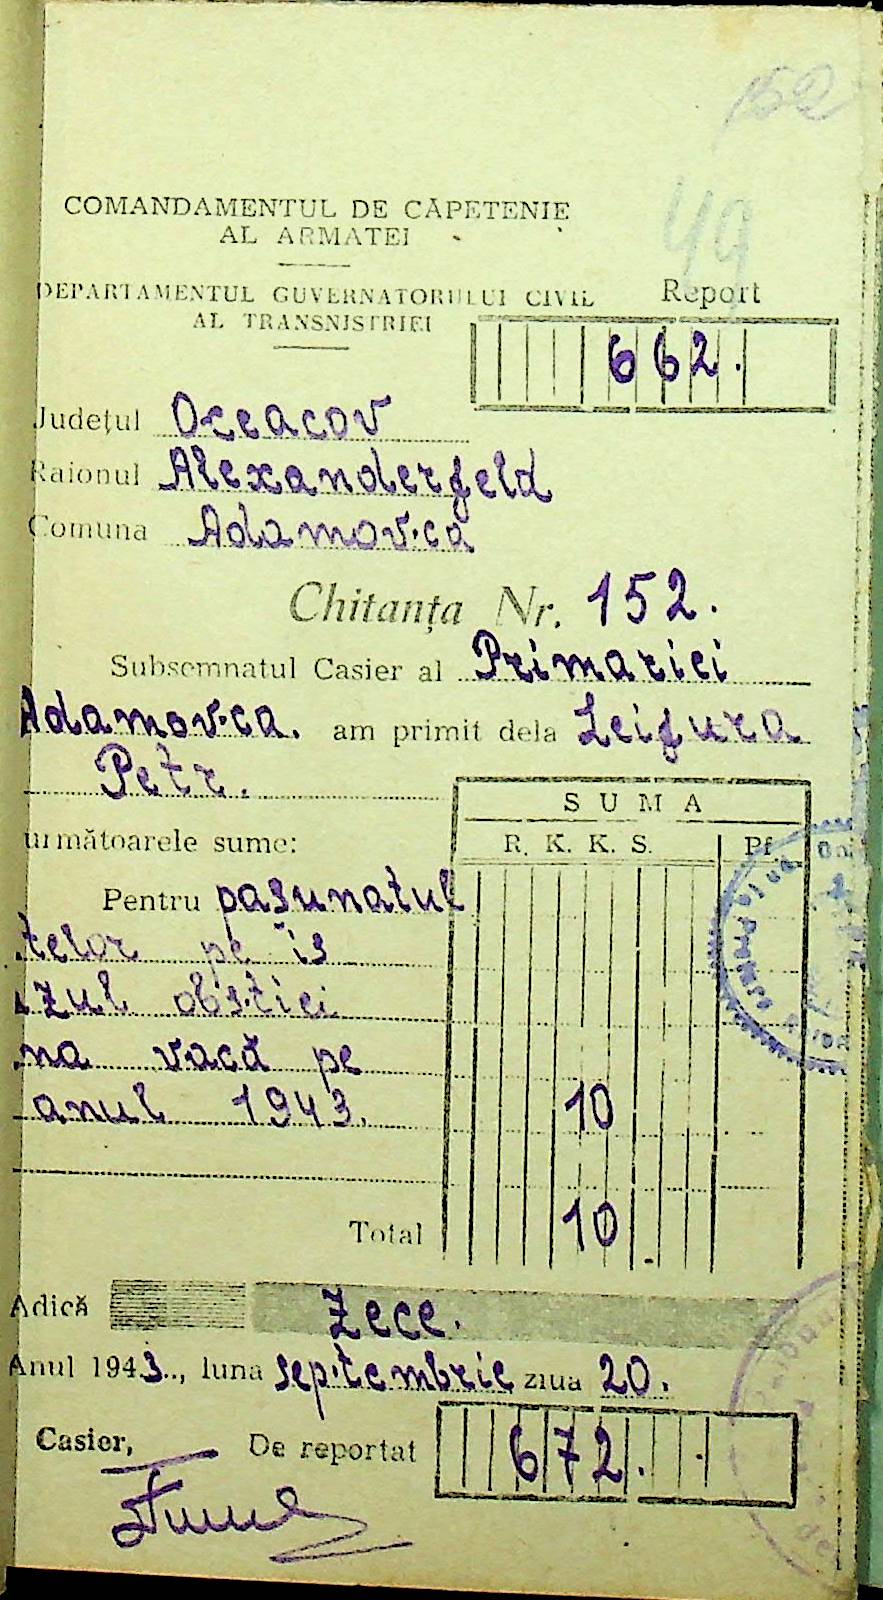 52
49
COMANDAMENTUL DE CĂPETENIE
AL ARMATEI
DEPARTAMENTUL GUVERNATORULUI CIVIL
AL TRANSNISTRIEI
Report
662.
Județul Oceacov
Raionul Alexanderfeld
Comuna Adamovca
Chitanța Nr. 152.
Subsemnatul Casier al Primariei
Adamovca. am primit dela Leifura
Petr.
următoarele sume:
SUMA
R. K. K. S. Pf.
Pentru pasunatul
telor pe is
zul obstiei
na vacă pe
anul 1943. 10
Total 10
Adică Zece.
Anul 1943.., luna septembrie ziua 20.
Casier, De reportat 672.